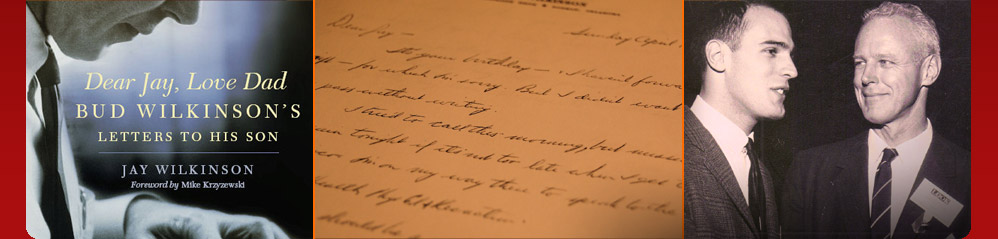 Dear Jay, Love Dad
BUD WILKINSON'S
LETTERS TO HIS SON
JAY WILKINSON
Foreword by Mike Krzyzewski
Dear Jay – Sunday April
your birthday – I haven't
for which I'm sorry. But I didn't want
pass without writing.
I tried to call this morning, but
tonight if it's not too late when I get
I'm on my way there to speak to the
Health Phys Ed & Recreation
should be